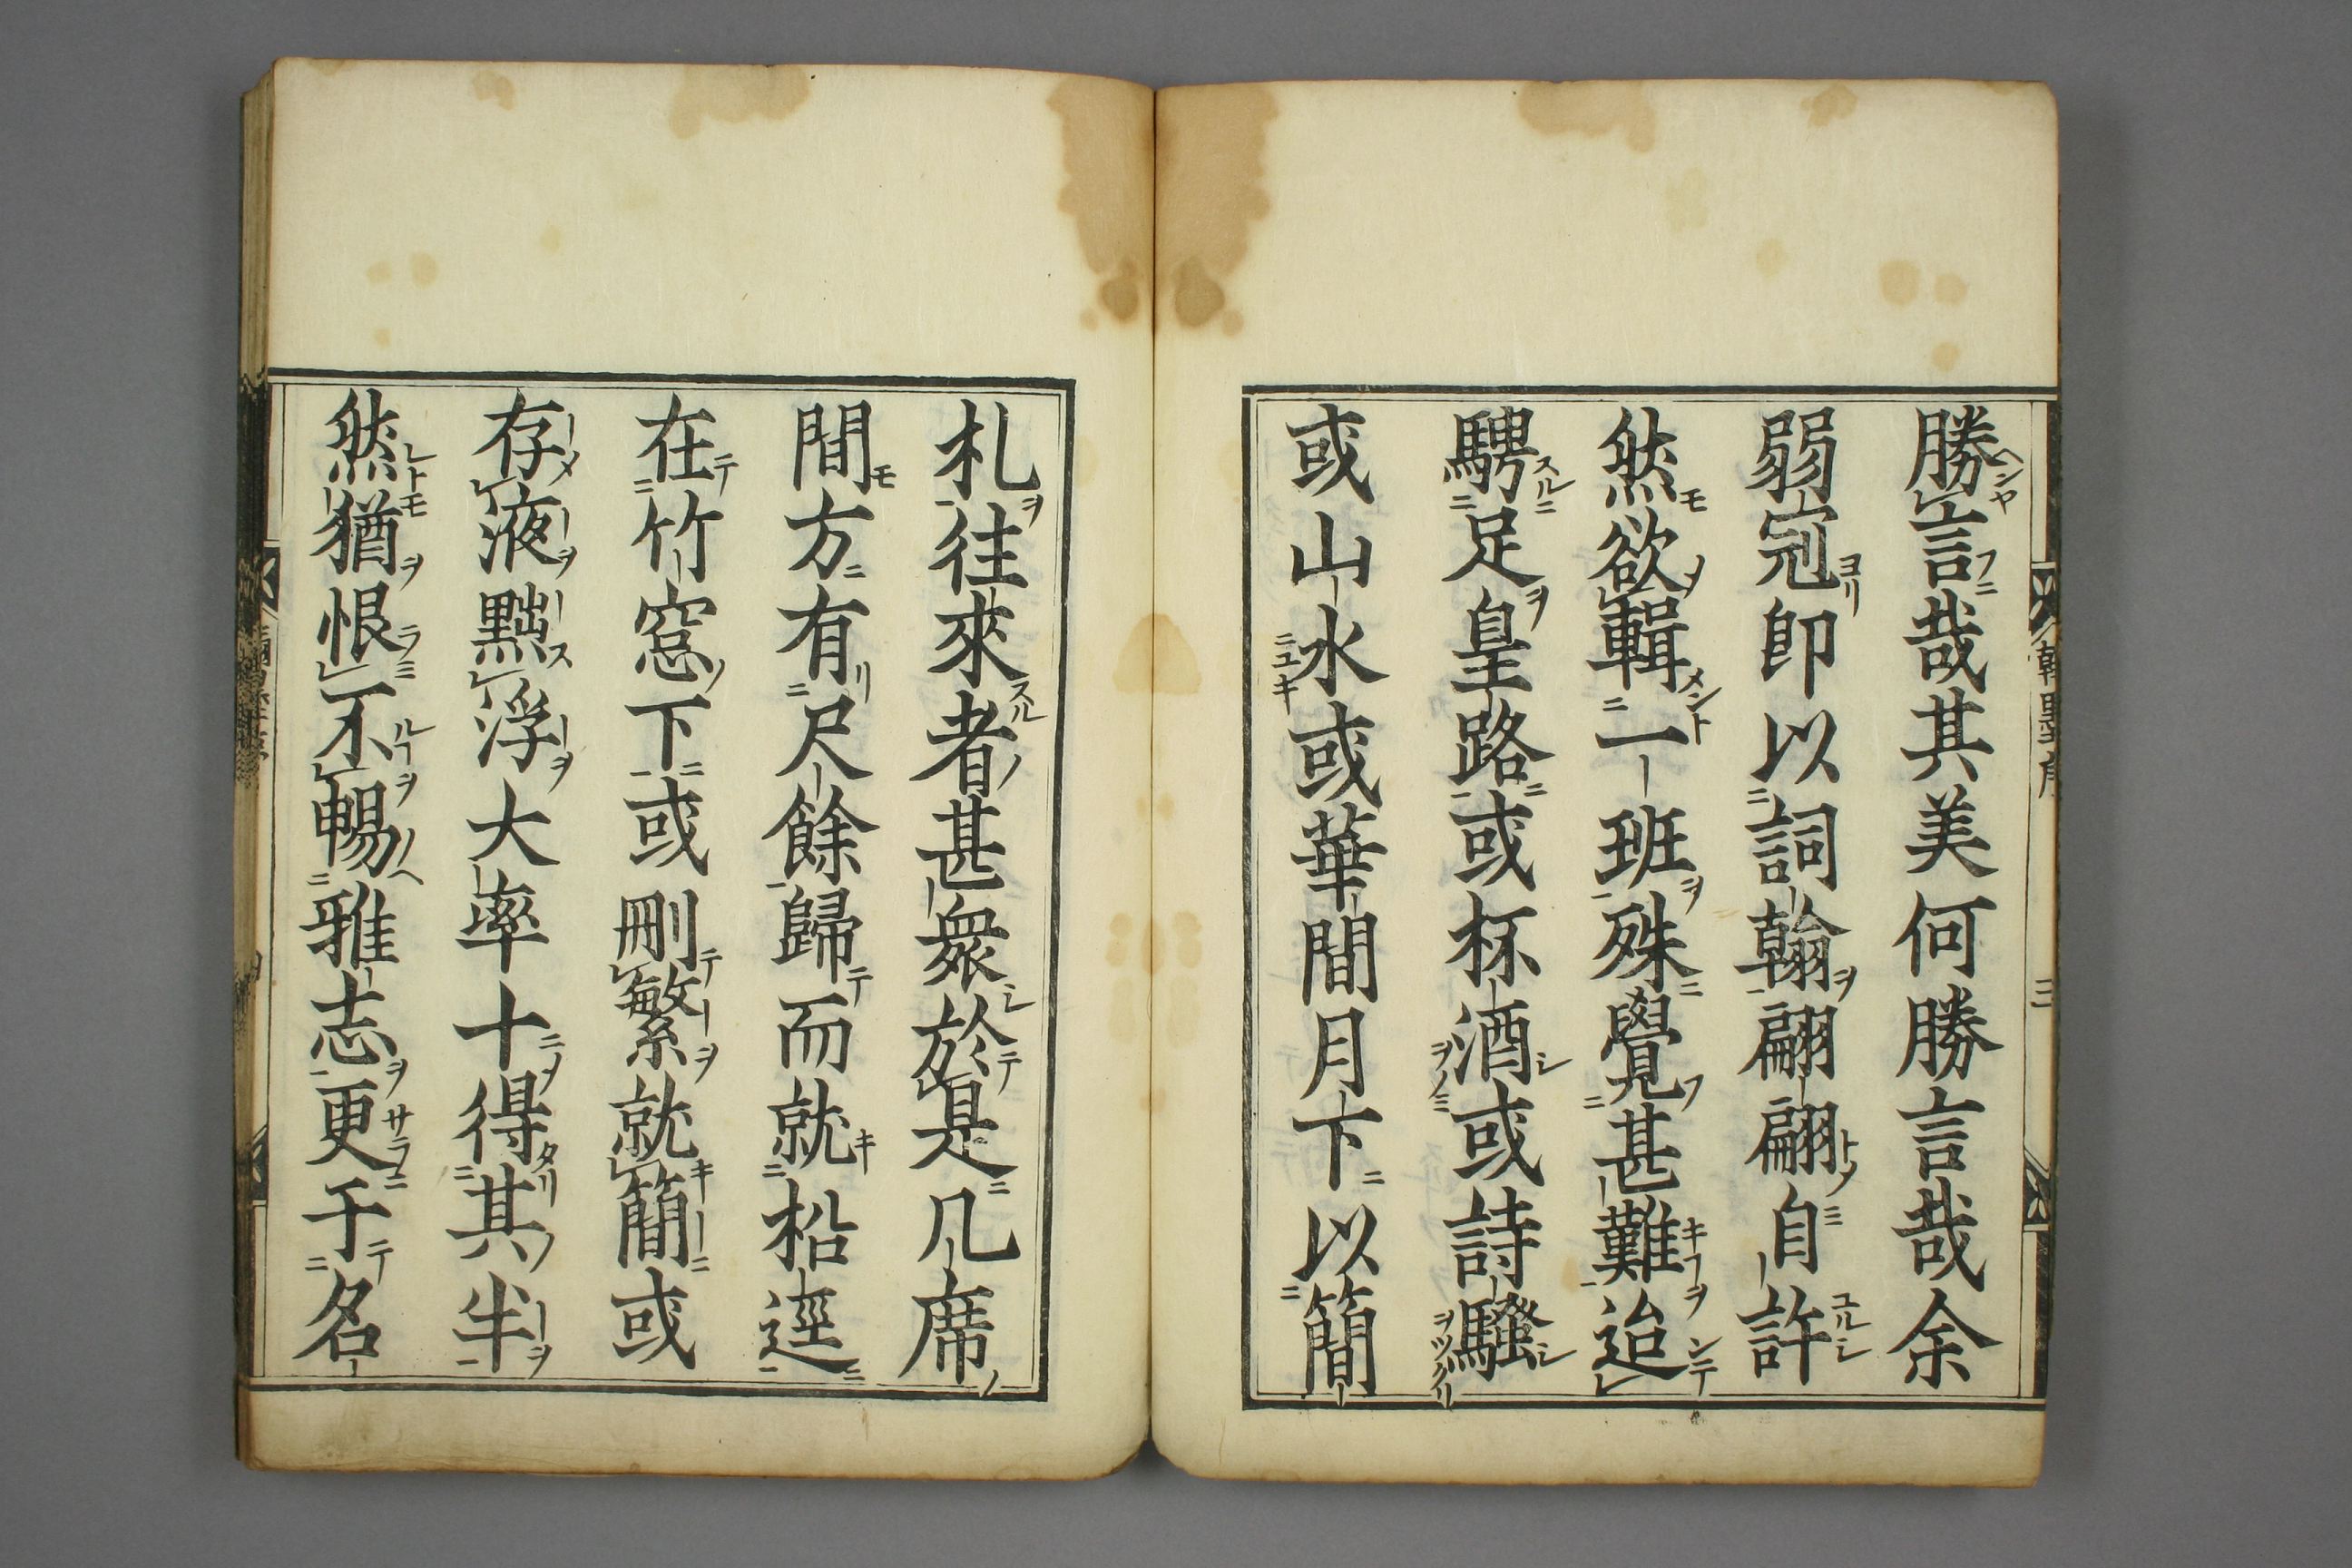 勝言哉其美何勝言哉余
弱冠卽以詞翰翩翩自許
然欲輯一班殊覺甚難迨
騁足皇路或杯酒或詩騷
或山水或華間月下以簡
札往來者甚衆於是几席
間方有尺餘歸而就松逕
在竹窓下或刪繁就簡或
存液黜浮大率十得其半
然猶恨不暢雅志更于名